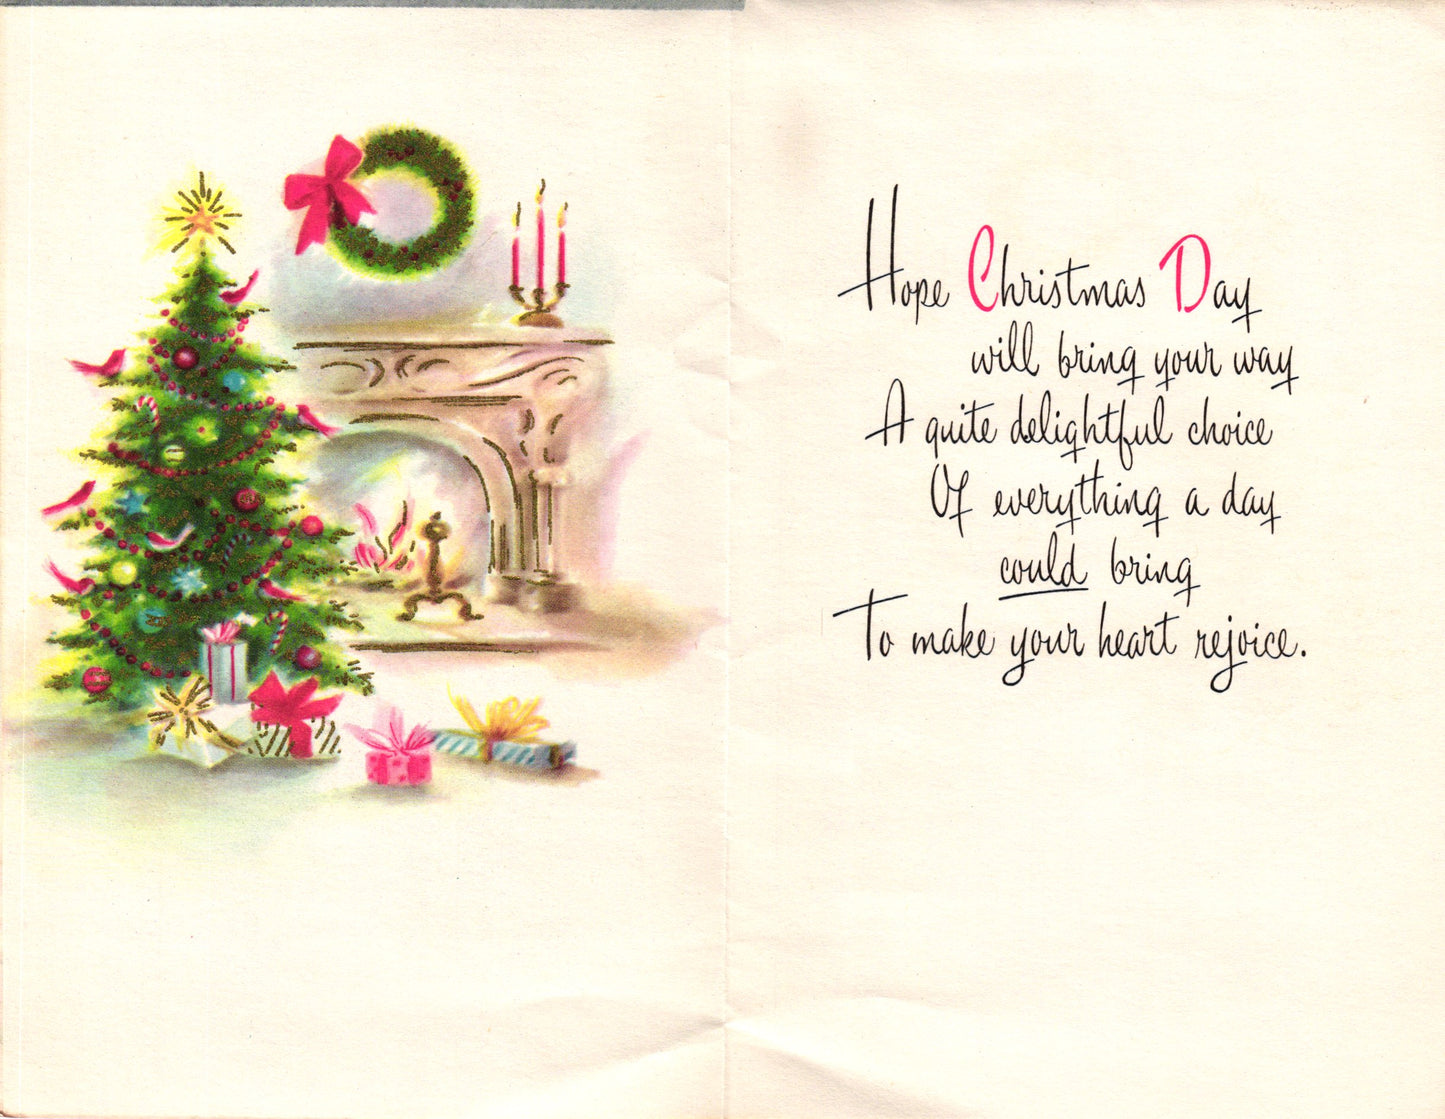 Hope Christmas Day
will bring your way
A quite delightful choice
Of everything a day
could bring
To make your heart rejoice.